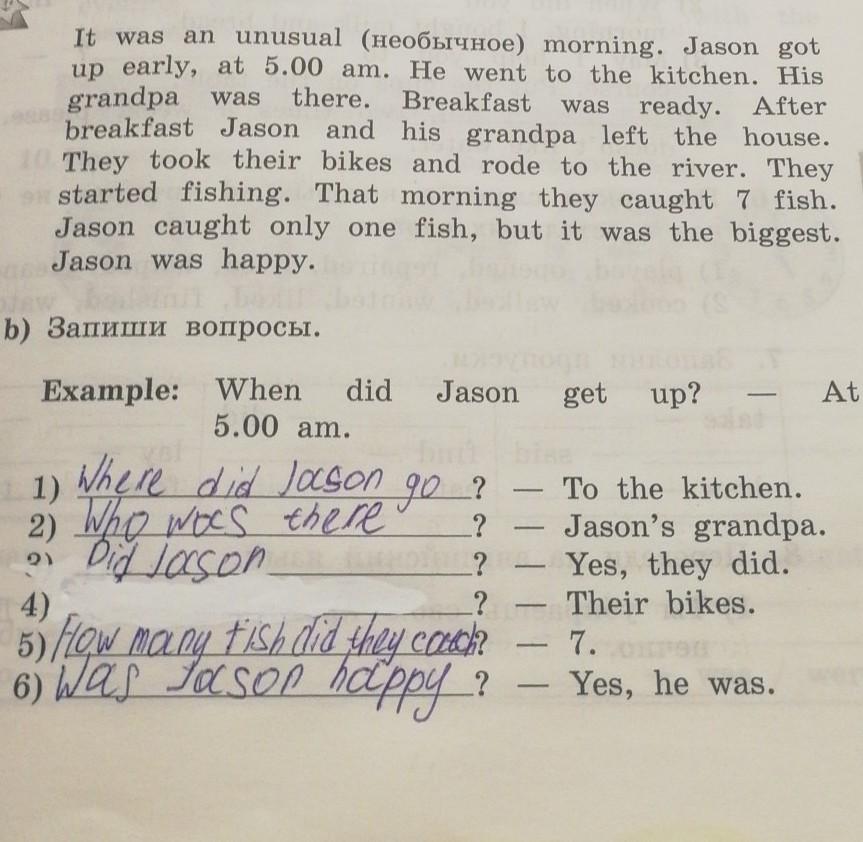 It was an unusual (необычное) morning. Jason got
up early, at 5.00 am. He went to the kitchen. His
grandpa was there. Breakfast was ready. After
breakfast Jason and his grandpa left the house.
They took their bikes and rode to the river. They
started fishing. That morning they caught 7 fish.
Jason caught only one fish, but it was the biggest.
Jason was happy.
b) Запиши вопросы.
Example: When did Jason get up? — At
5.00 am.
1) Where did Jason go ? — To the kitchen.
2) Who was there ? — Jason's grandpa.
3) Did Jason ? — Yes, they did.
4) ? — Their bikes.
5) How many fish did they catch? — 7.
6) Was Jason happy ? — Yes, he was.